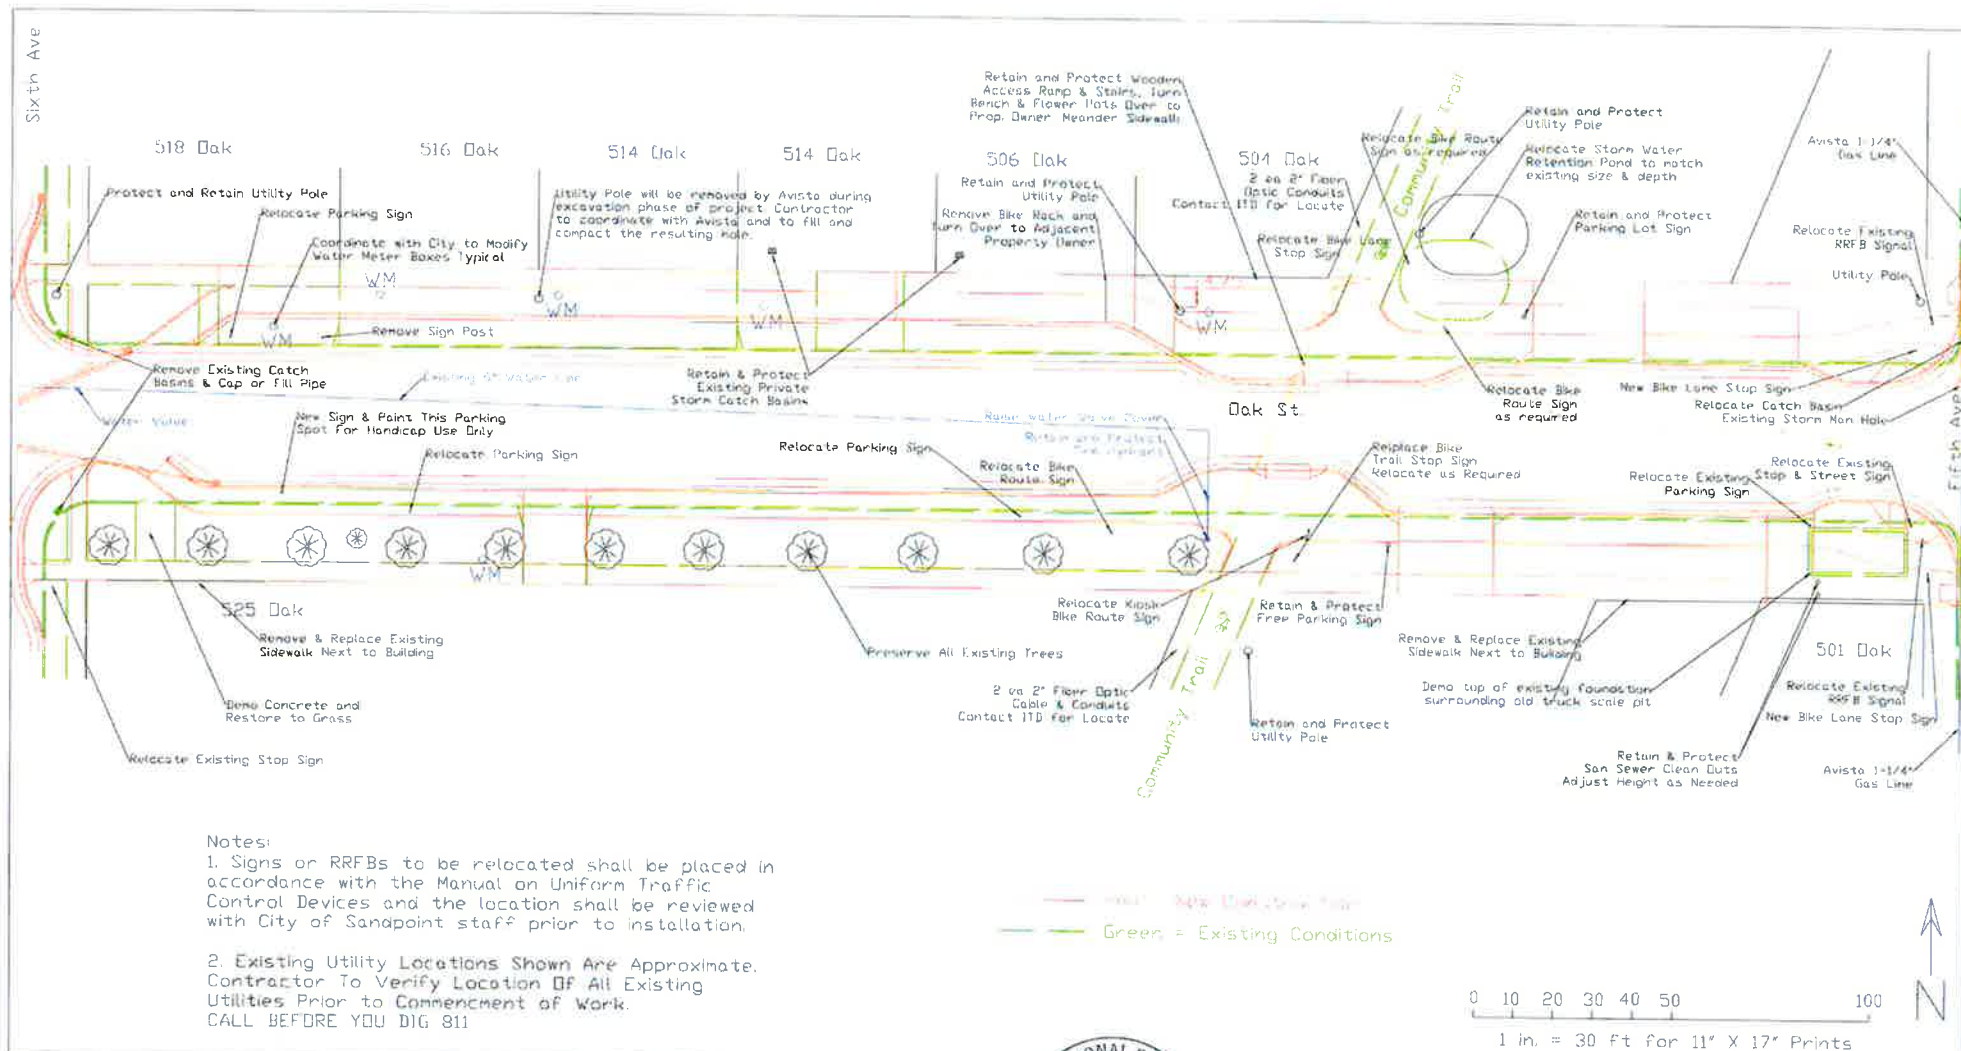 Sixth Ave
518 Oak
516 Oak
514 Oak
514 Oak
506 Oak
504 Oak
Protect and Retain Utility Pole
Relocate Parking Sign
Coordinate with City to Modify
Water Meter Boxes Typical
WM
WM
WM
WM
WM
Remove Sign Post
Utility Pole will be removed by Avista during
excavation phase of project. Contractor
to coordinate with Avista and to fill and
compact the resulting hole.
Retain and Protect Wooden
Access Ramp & Stairs, Turn
Bench & Flower Pots Over to
Prop. Owner Meander Sidewalk
Retain and Protect
Utility Pole
Remove Bike Rack and
Turn Over to Adjacent
Property Owner
2 ea 2" Fiber
Optic Conduits
Contact ITD for Locate
Relocate Bike Lane
Stop Sign
Relocate Bike Route
Sign as required
Community Trail
Retain and Protect
Utility Pole
Relocate Storm Water
Retention Pond to match
existing size & depth
Retain and Protect
Parking Lot Sign
Avista 1-1/4"
Gas Line
Relocate Existing
RRFB Signal
Utility Pole
Remove Existing Catch
Basins & Cap or Fill Pipe
Existing Water Line
Water Valve
Retain & Protect
Existing Private
Storm Catch Basins
Oak St.
Relocate Bike
Route Sign
as required
New Bike Lane Stop Sign
Relocate Catch Basin
Existing Storm Man Hole
Fifth Ave
New Sign & Paint This Parking
Spot For Handicap Use Only
Relocate Parking Sign
Relocate Parking Sign
Raise Water Valve Cover
Retain and Protect
Relocate Bike
Route Sign
Relplace Bike
Trail Stop Sign
Relocate as Required
Relocate Existing
Parking Sign
Relocate Existing
Stop & Street Sign
WM
525 Oak
Remove & Replace Existing
Sidewalk Next to Building
Demo Concrete and
Restore to Grass
Relocate Existing Stop Sign
Preserve All Existing Trees
Relocate Kiosk
Bike Route Sign
2 ea 2" Fiber Optic
Cable & Conduits
Contact ITD for Locate
Community Trail
Retain & Protect
Free Parking Sign
Retain and Protect
Utility Pole
Remove & Replace Existing
Sidewalk Next to Building
Demo top of existing foundation
surrounding old truck scale pit
501 Oak
Relocate Existing
RRFB Signal
New Bike Lane Stop Sign
Retain & Protect
San Sewer Clean Outs
Adjust Height as Needed
Avista 1-1/4"
Gas Line
Notes:
1. Signs or RRFBs to be relocated shall be placed in
accordance with the Manual on Uniform Traffic
Control Devices and the location shall be reviewed
with City of Sandpoint staff prior to installation.
2. Existing Utility Locations Shown Are Approximate.
Contractor To Verify Location Of All Existing
Utilities Prior to Commencment of Work.
CALL BEFORE YOU DIG 811
Green = Existing Conditions
0 10 20 30 40 50 100
1 in. = 30 ft for 11" X 17" Prints
N